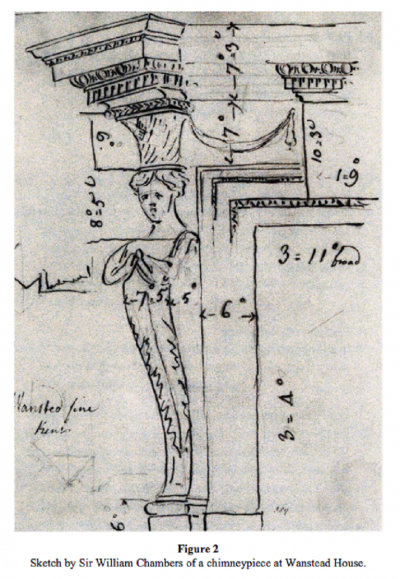 7=3°
7°
6°
10=3°
1=9°
8°=5°
3=11° broad
7=5
5°
6°
3=4°
6°
Figure 2
Sketch by Sir William Chambers of a chimneypiece at Wanstead House.